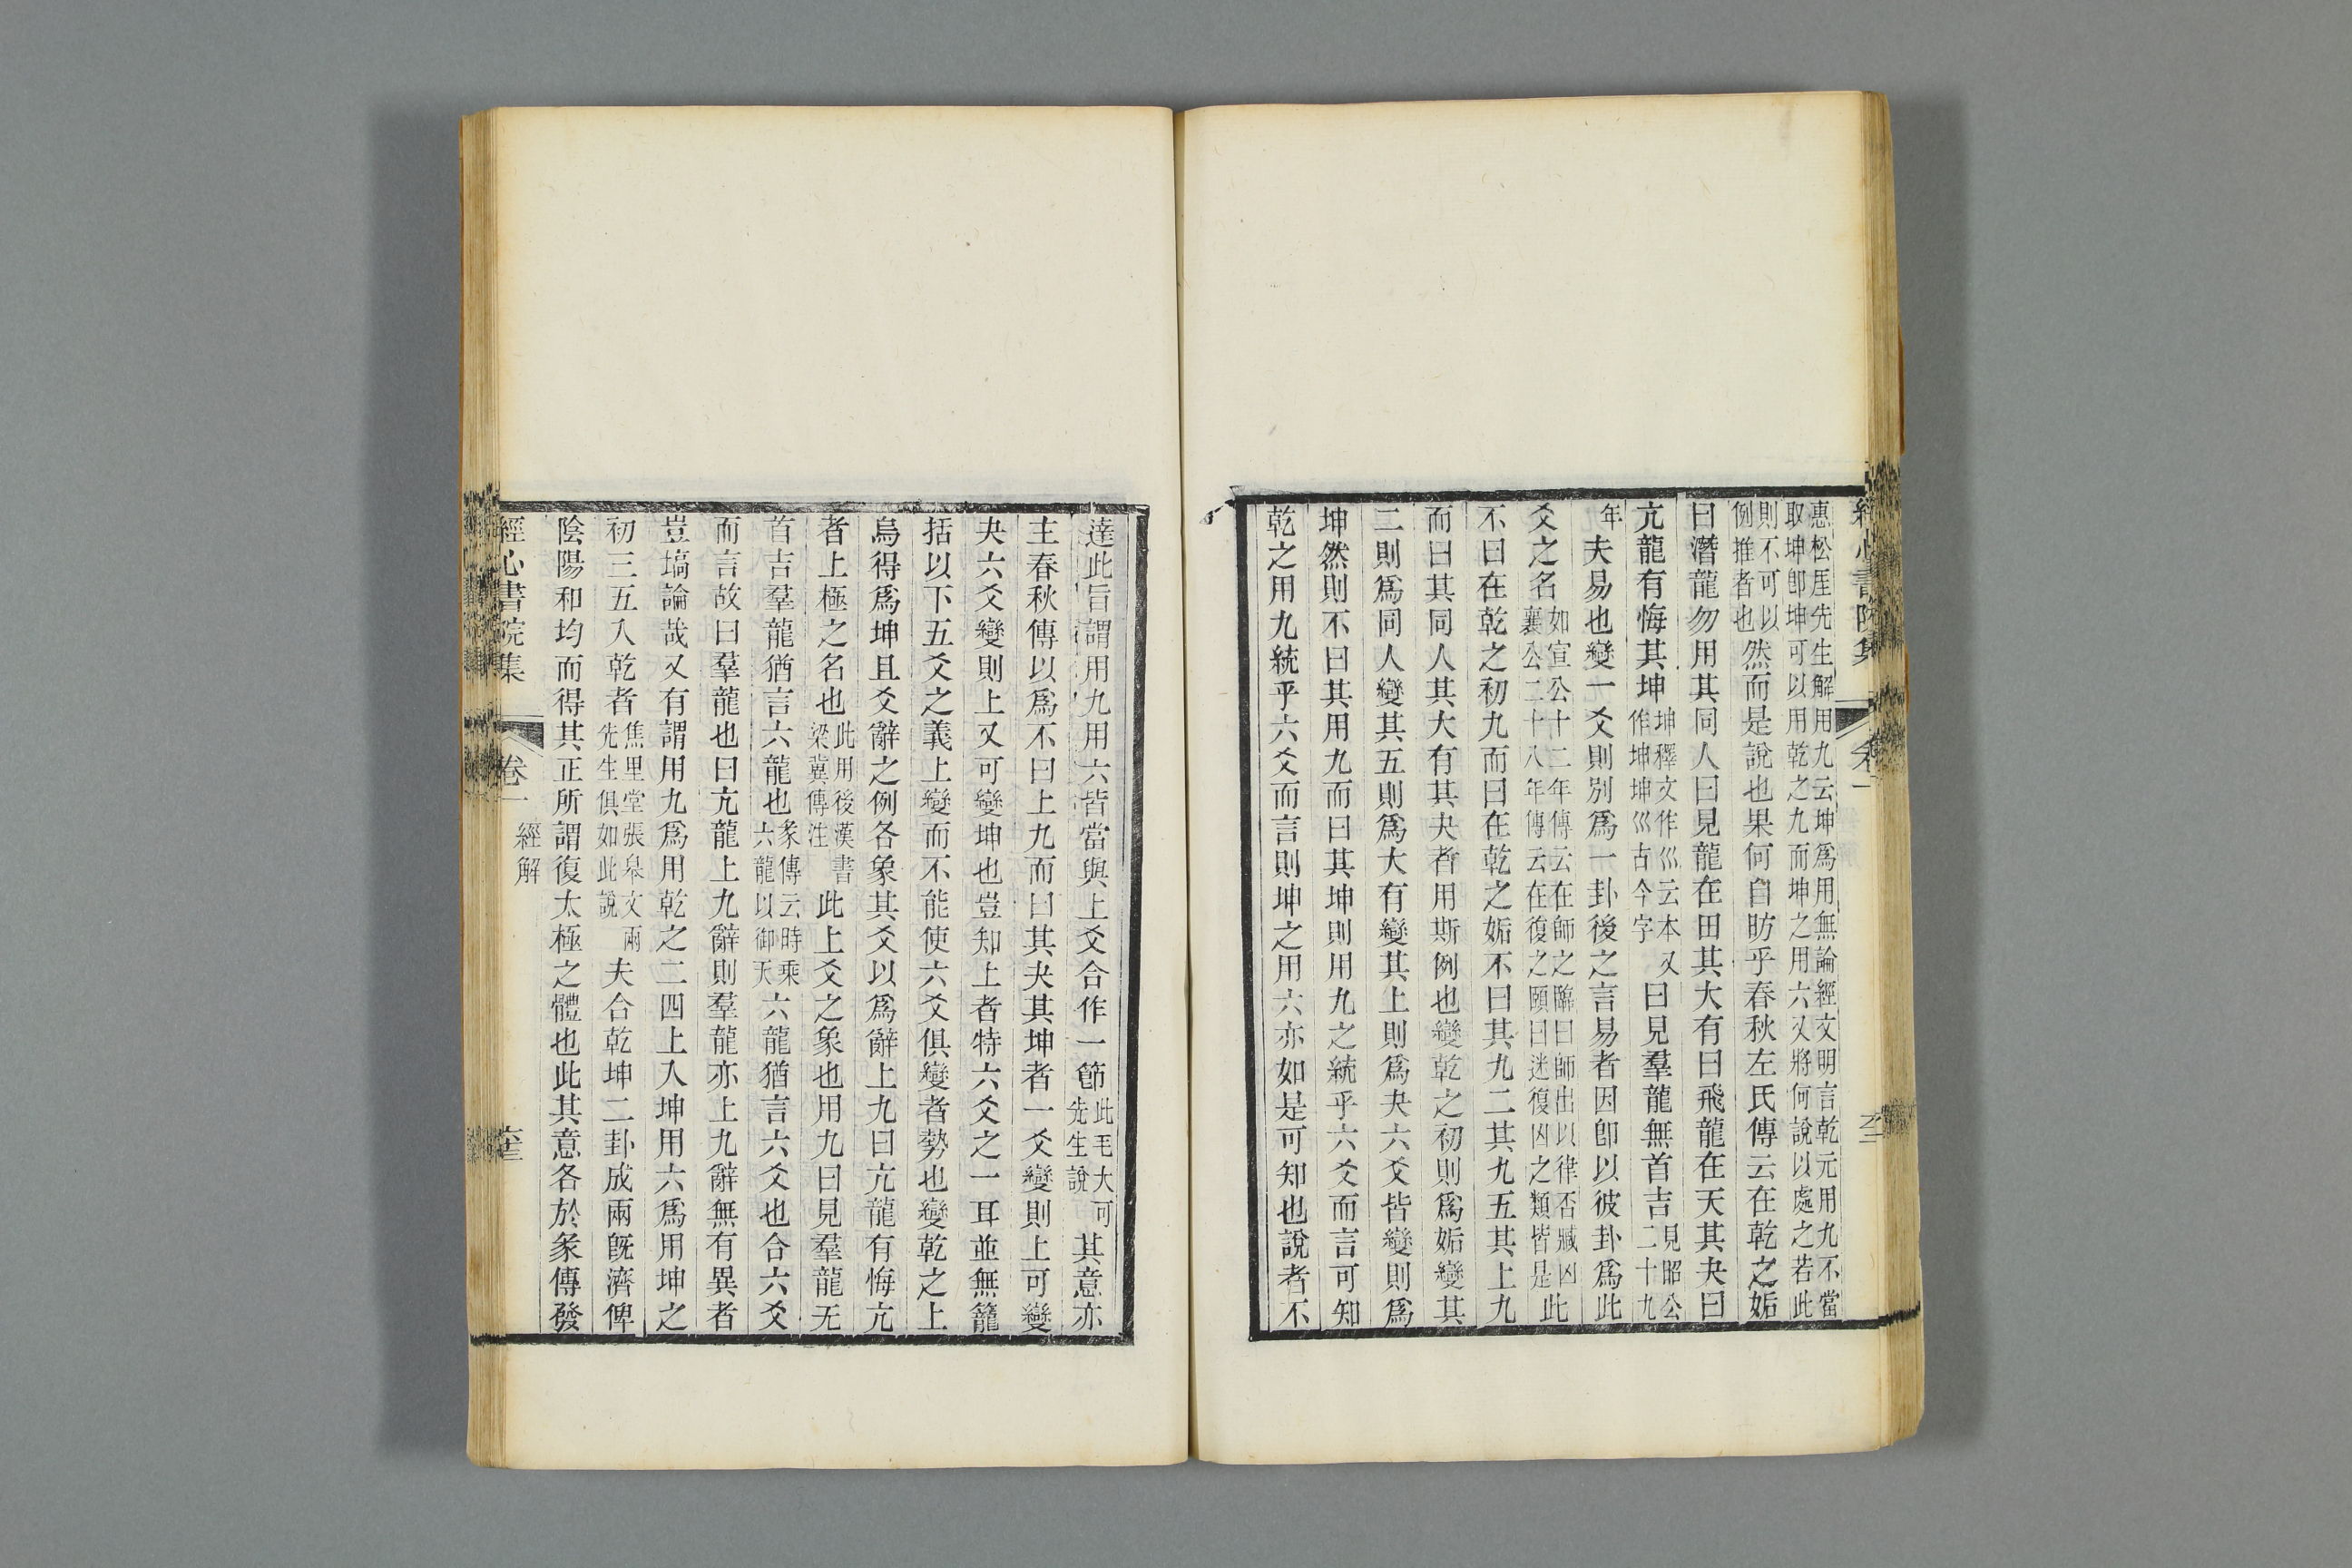 經心書院集 卷一
惠松厓先生解用九云坤爲用無論經文明言乾元用九不當
取坤卽坤可以用乾之九而坤之用六又將何說以處之若此
則不可以
例推者也然而是說也果何自昉乎春秋左氏傳云在乾之姤
曰潛龍勿用其同人曰見龍在田其大有曰飛龍在天其夬曰
亢龍有悔其坤坤釋文作巛云本又作坤坤巛古今字曰見羣龍無首吉見昭公二十九
年夫易也變一爻則別爲一卦後之言易者因卽以彼卦爲此
爻之名如宣公十二年傳云在師之臨曰師出以律否臧凶襄公二十八年傳云在復之頤曰迷復凶之類皆是此
不曰在乾之初九而曰在乾之姤不曰其九二其九五其上九
而曰其同人其大有其夬者用斯例也變乾之初則爲姤變其
二則爲同人變其五則爲大有變其上則爲夬六爻皆變則爲
坤然則不曰其用九而曰其坤則用九之統乎六爻而言可知
乾之用九統乎六爻而言則坤之用六亦如是可知也說者不
達此旨謂用九用六皆當與上爻合作一節此毛大可先生說其意亦
主春秋傳以爲不曰上九而曰其夬其坤者一爻變則上可變
夬六爻變則上又可變坤也豈知上者特六爻之一耳並無籠
括以下五爻之義上變而不能使六爻俱變者勢也變乾之上
烏得爲坤且爻辭之例各象其爻以爲辭上九曰亢龍有悔亢
者上極之名也此用後漢書梁冀傳注此上爻之象也用九曰見羣龍无
首吉羣龍猶言六龍也彖傳云時乘六龍以御天六龍猶言六爻也合六爻
而言故曰羣龍也曰亢龍上九辭則羣龍亦上九辭無有異者
豈塙論哉又有謂用九爲用乾之二四上入坤用六爲用坤之
初三五入乾者焦里堂張皋文兩先生俱如此說夫合乾坤二卦成兩旣濟俾
陰陽和均而得其正所謂復太極之體也此其意各於彖傳發
經心書院集 卷一 經解